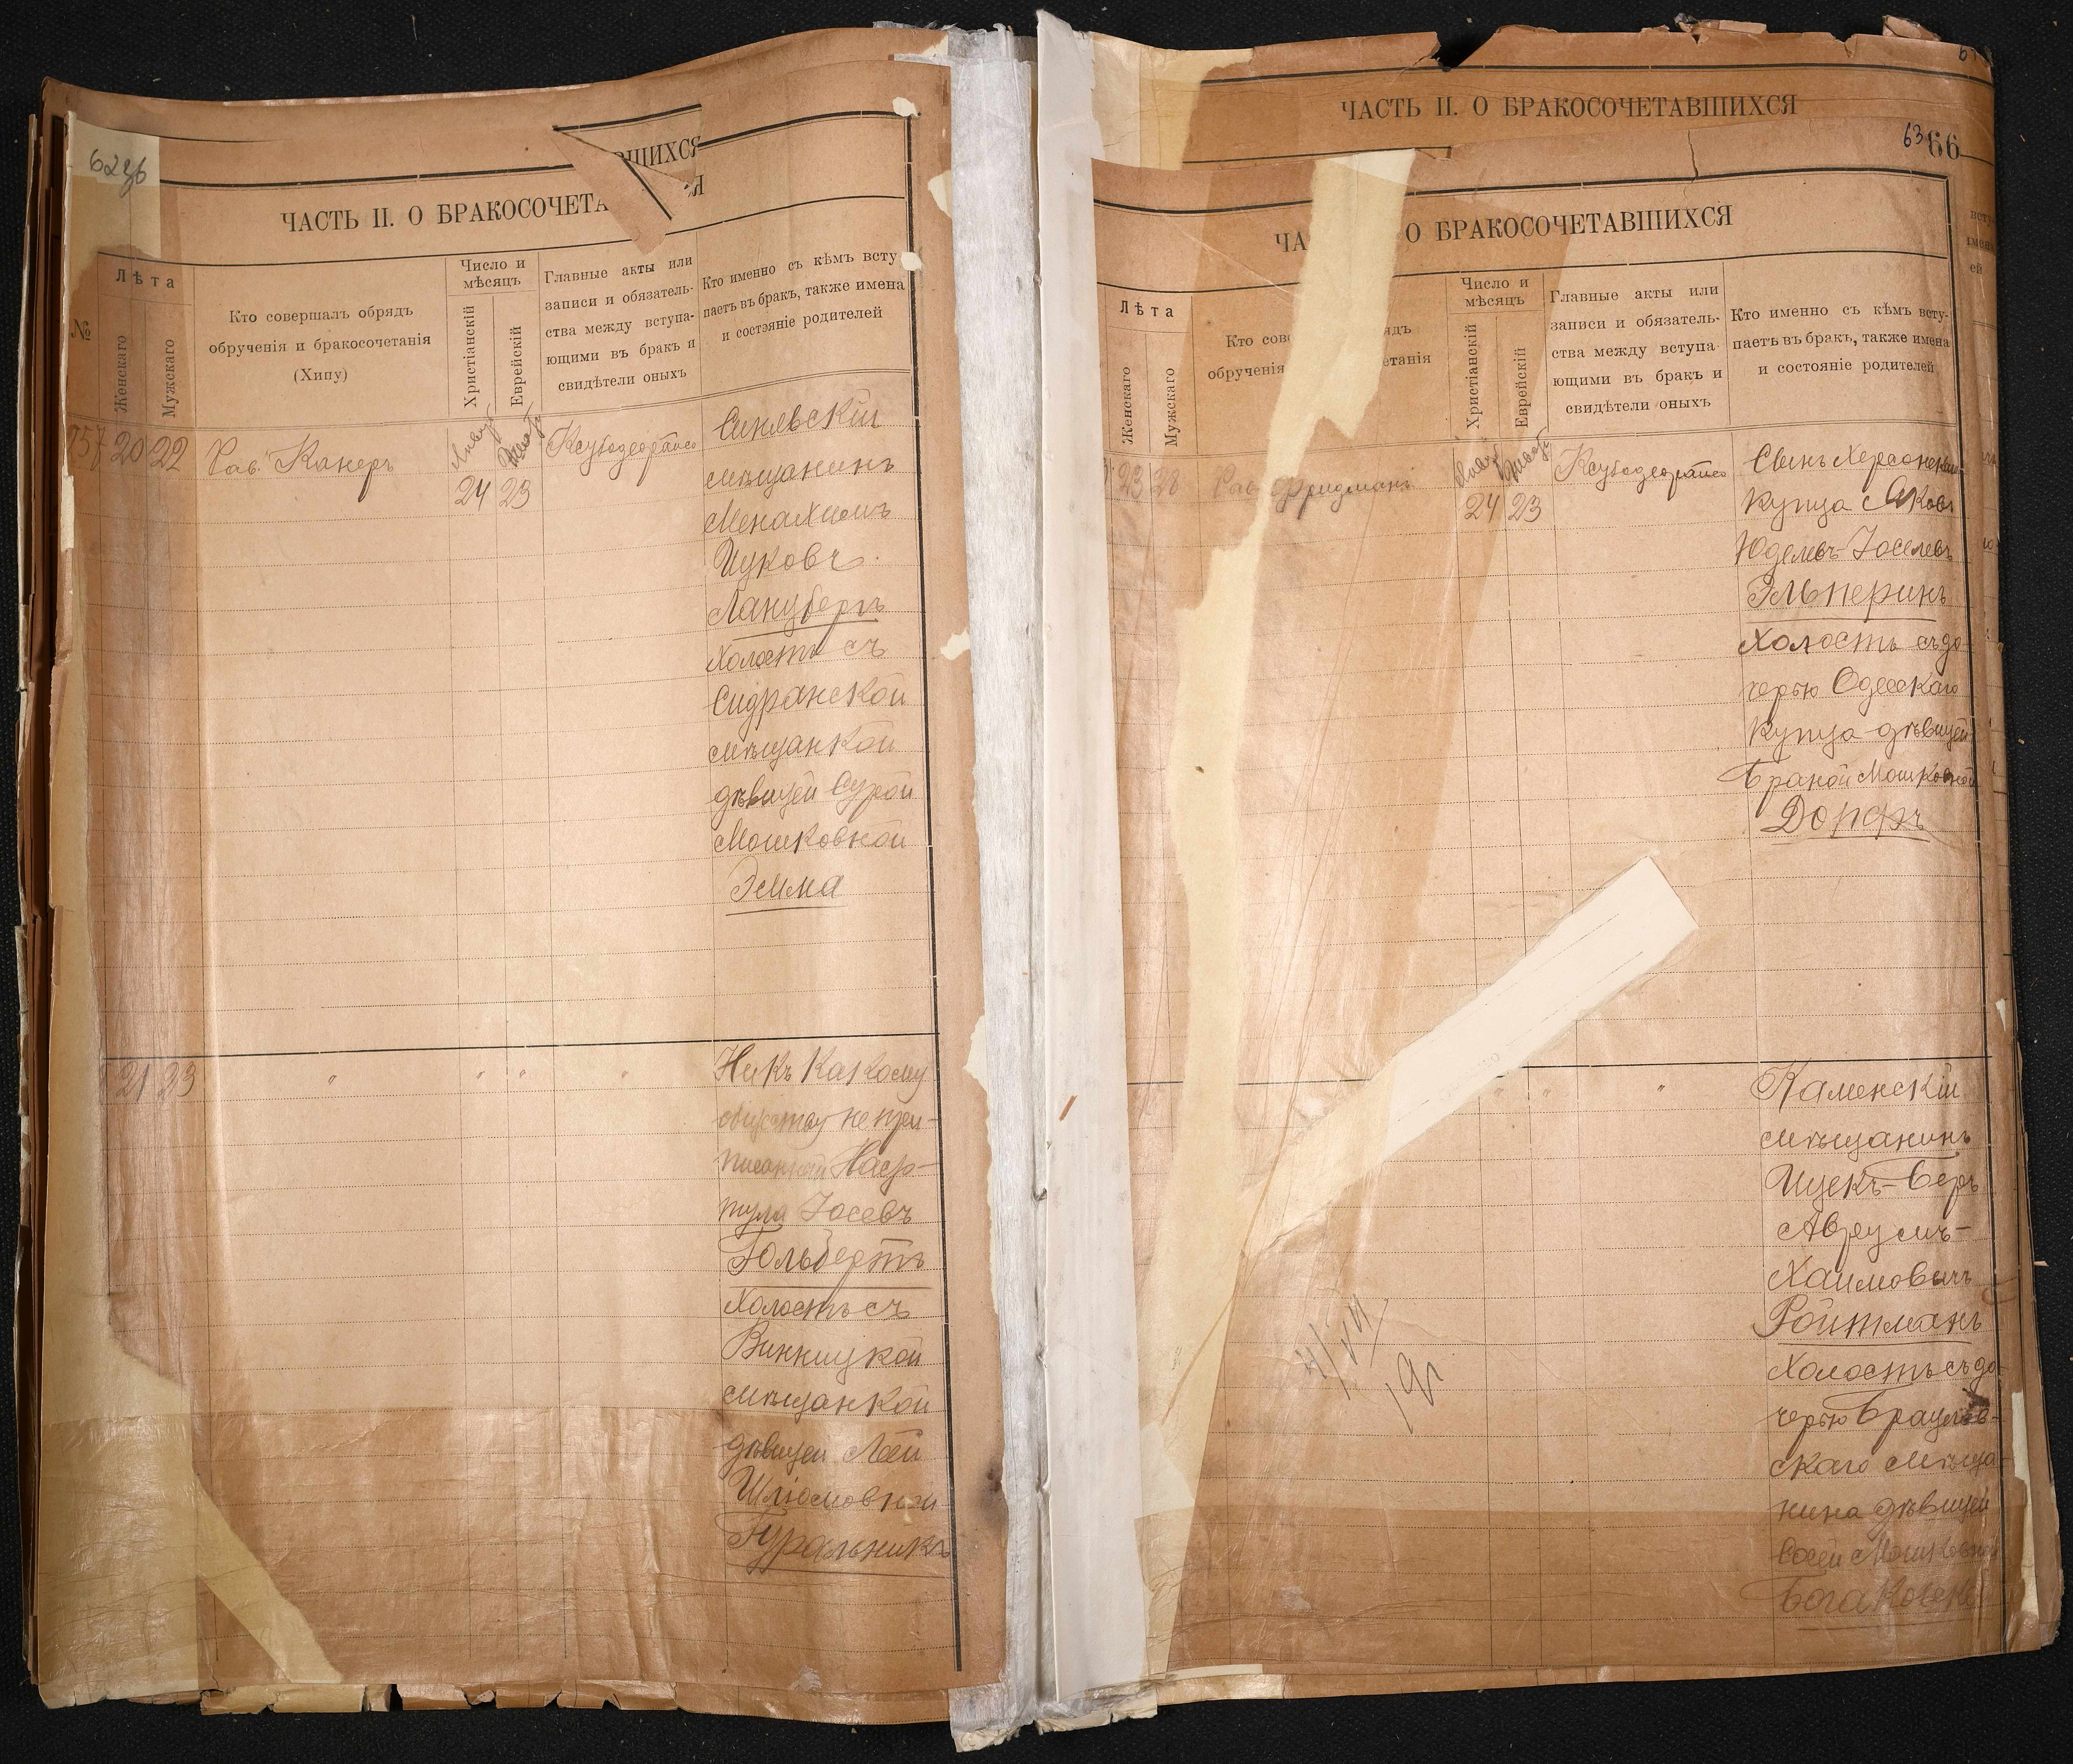 62зб
ВШИХСЯ
ЧАСТЬ II. О БРАКОСОЧЕТА
Я
№
Лѣта
Женскаго
Мужскаго
Кто совершалъ обрядъ
обрученія и бракосочетанія
(Хипу)
Число и
мѣсяцъ
Христіанскій
Еврейскій
Главные акты или
записи и обязатель-
ства между вступа-
ющими въ бракъ и
свидѣтели оныхъ
Кто именно съ кѣмъ всту
паетъ въ бракъ, также имена
и состояніе родителей
157 20 22
Рав. Канеръ
24 23
Синявскій
мѣщанинъ
Менахимъ
Ицковъ
Ланцбергъ
холостъ съ
Сидранской
мѣщанкой
дѣвицей Сурой
Мошковной
Зейма
21 23
" " " "
Ни къ какому
обществу не при-
писанный Нафф-
тула Іосевъ
Гольбертъ
холостъ съ
Винницкой
мѣщанкой
дѣвицей Леей
Шліомовной
Гуральникъ
ЧАСТЬ II. О БРАКОСОЧЕТАВШИХСЯ
63 66
ЧА О БРАКОСОЧЕТАВШИХСЯ
Лѣта
Женскаго
Мужскаго
Кто сов ядъ
обрученія етанія
Число и
мѣсяцъ
Христіанскій
Еврейскій
Главные акты или
записи и обязатель-
ства между вступа-
ющими въ бракъ и
свидѣтели оныхъ
Кто именно съ кѣмъ всту-
паетъ въ бракъ, также имена
и состояніе родителей
23 28
Рав. Фридманъ
24 23
Сынъ Херсонскаго
купца
Юделевъ-Іоселевъ
Эльперинъ
холостъ съ до-
черью Одесскаго
купца дѣвицей
Браной Мошковной
Дорфъ
" " "
Каменскій
мѣщанинъ
Ицекъ-Беръ
Аврумъ-
Хаимовичъ
Ройтманъ
холостъ съ до-
черью Браулов-
скаго мѣща-
нина дѣвицей
Мошковной